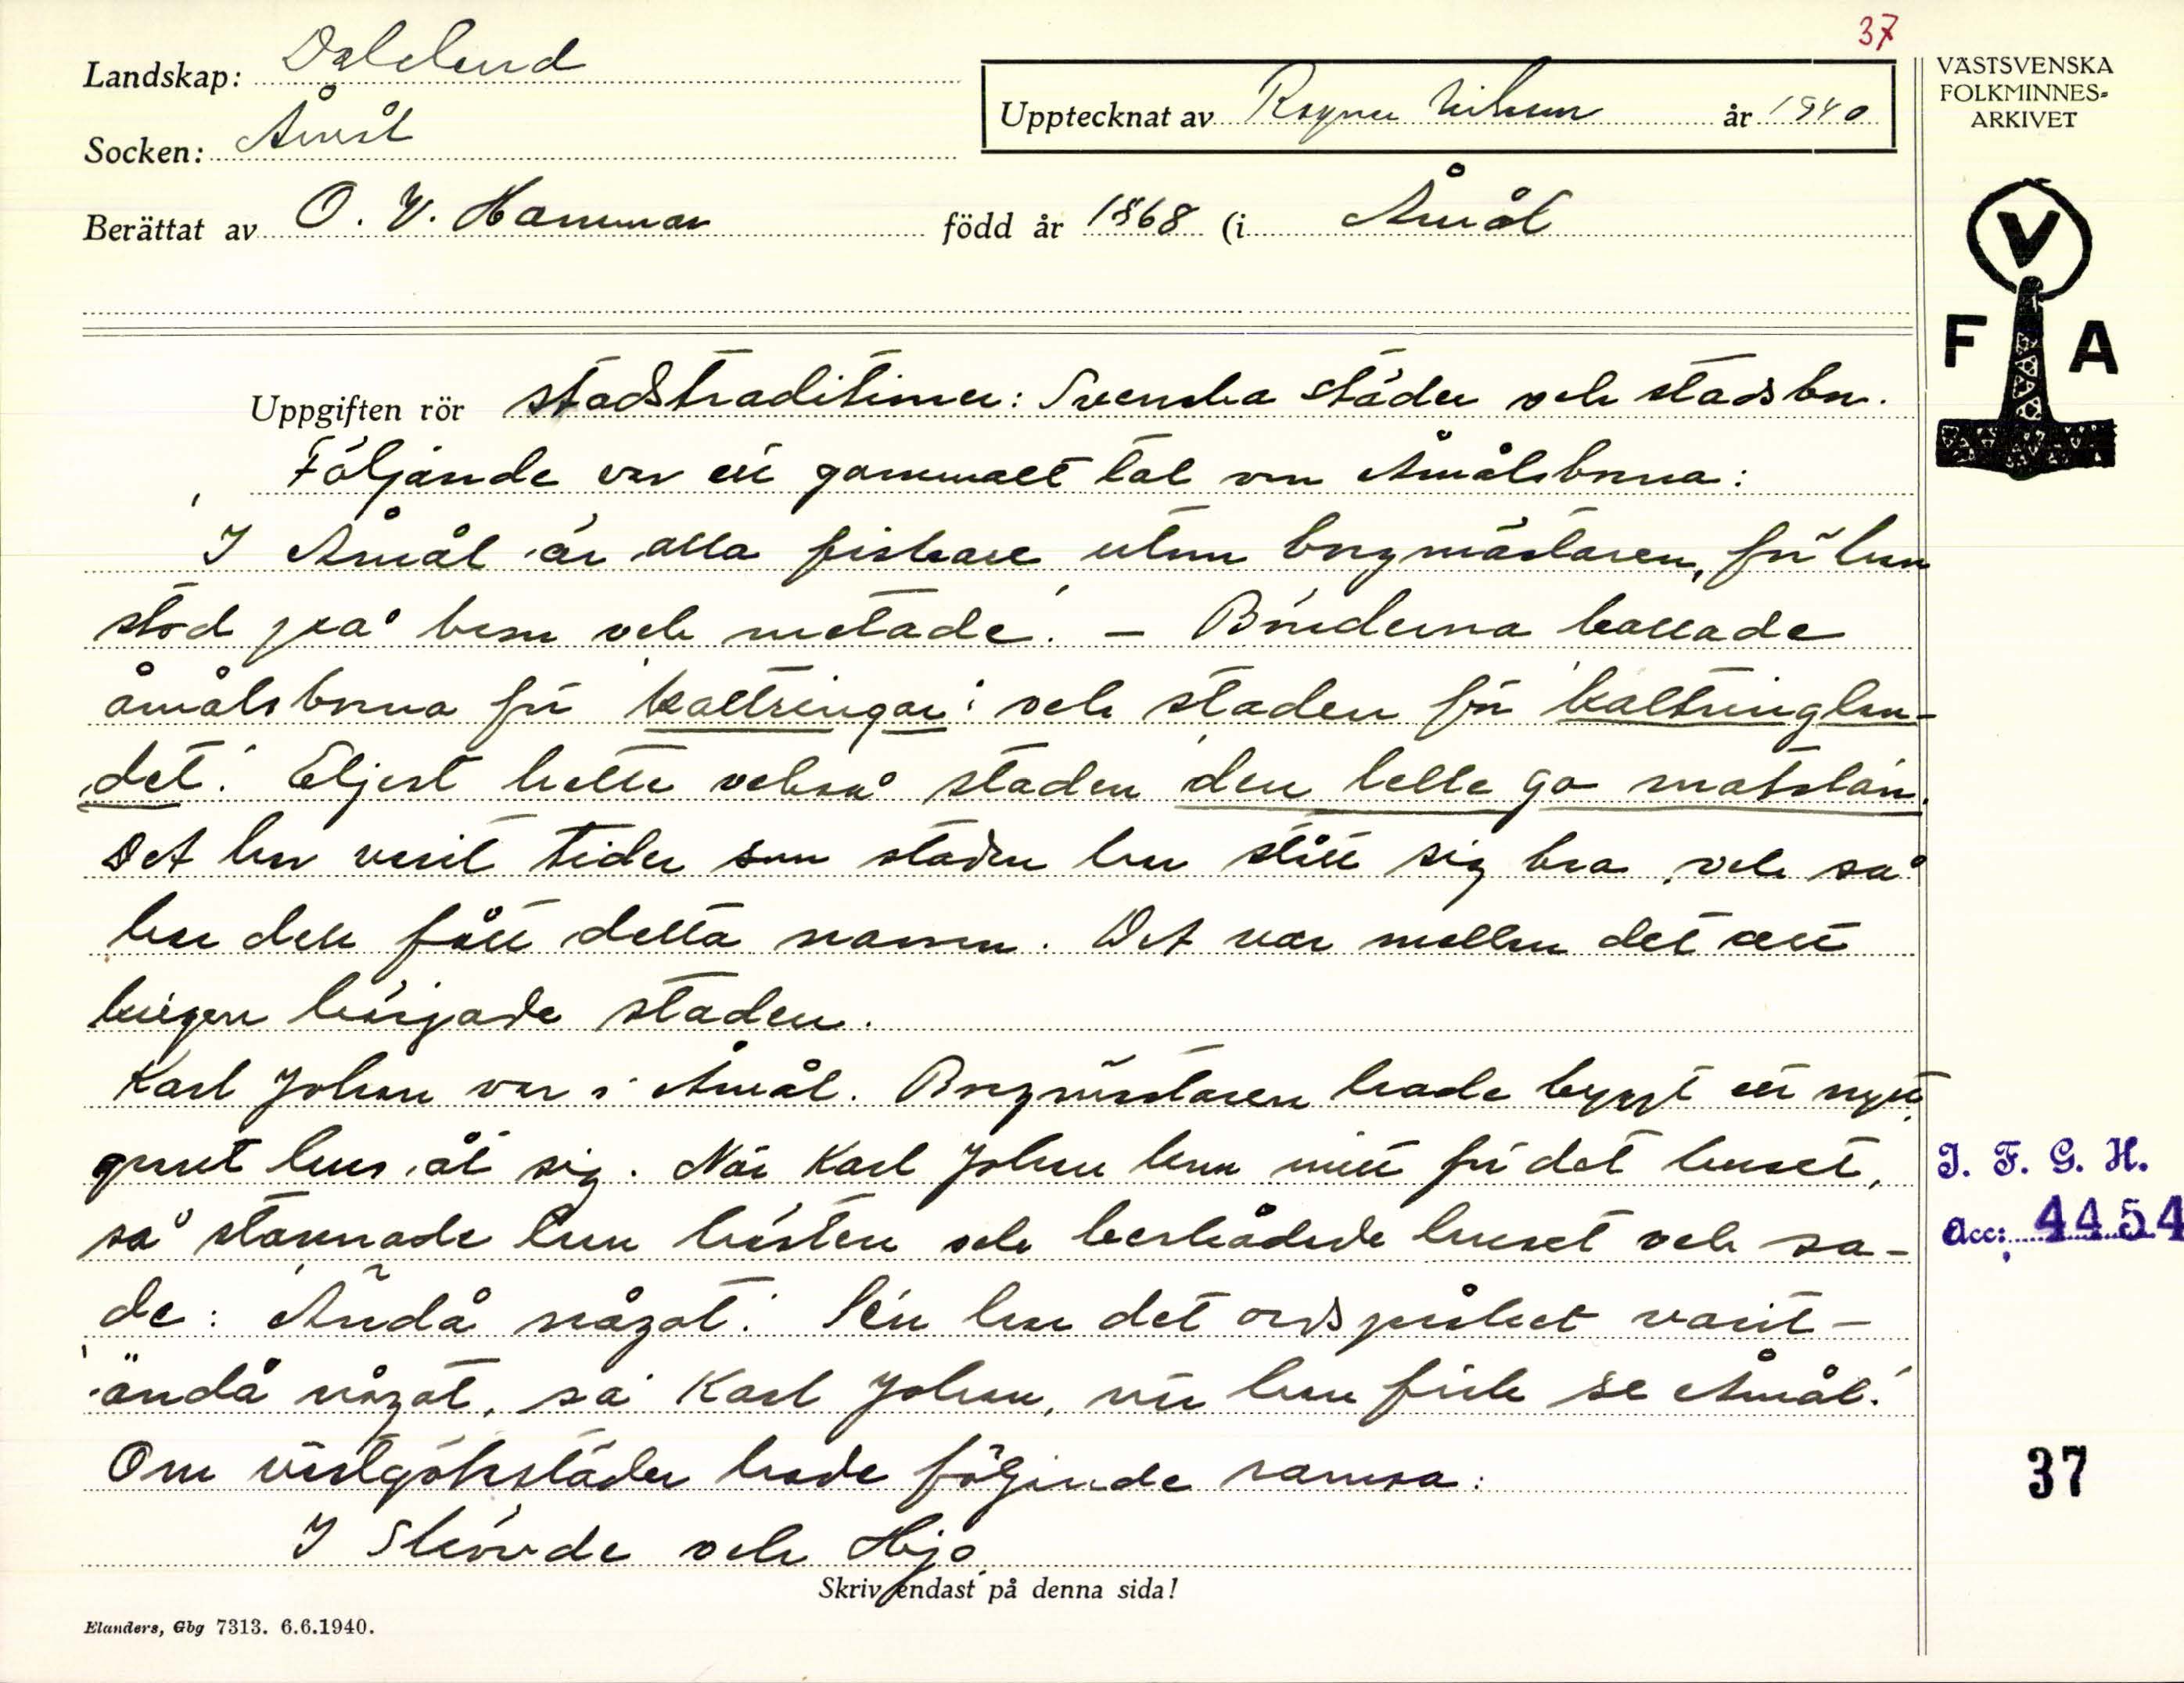 37
Landskap: Dalsland
Socken: Åmål
Upptecknat av Ragnar Nilsson år 1940
Berättat av O. V. Hammar född år 1868 (i Åmål
VÄSTSVENSKA
FOLKMINNES-
ARKIVET
V
F A
Uppgiften rör stadstraditioner: Svenska städer och stadsbor.
Följande var ett gammalt tal om Åmålsborna:
'I Åmål är alla fiskare utom borgmästaren, för han
stod på bron och metade'. – Bönderna kallade
åmålsborna för 'kaltringar' och staden för 'kaltringlan-
det'. Eljest hette också staden 'den lelle go matstän'.
Det har varit tider som staden har stått sig bra, och så
har den fått detta namn. Det var mellan det att
kungen härjade staden.
Karl Johan var i Åmål. Borgmästaren hade byggt ett nytt
grant hus åt sig. När Karl Johan kom mitt för det huset,
så stannade han hästen och beskådade huset och sa-
de: 'Ändå något'. Sen har det ordspråket varit –
'ändå något, sa Karl Johan, när han fick se Åmål'.
Om västgötastäder hade följande ramsa:
I Skövde och Hjo
Skriv endast på denna sida!
Elanders, Gbg 7313. 6.6.1940.
I. F. G. H.
Acc: 4454
37